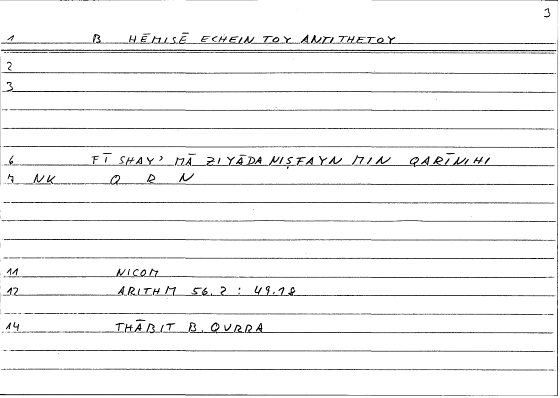 3
1 B HĒMISĒ ECHEIN TOY ANTITHETOY
2
3
6 FĪ SHAY' MĀ ZIYĀDA NIṢFAYN MIN QARĪNIHI
7 NK Q R N
11 NICOM
12 ARITHM 56.2 : 49.18
14 THĀBIT B. QURRA